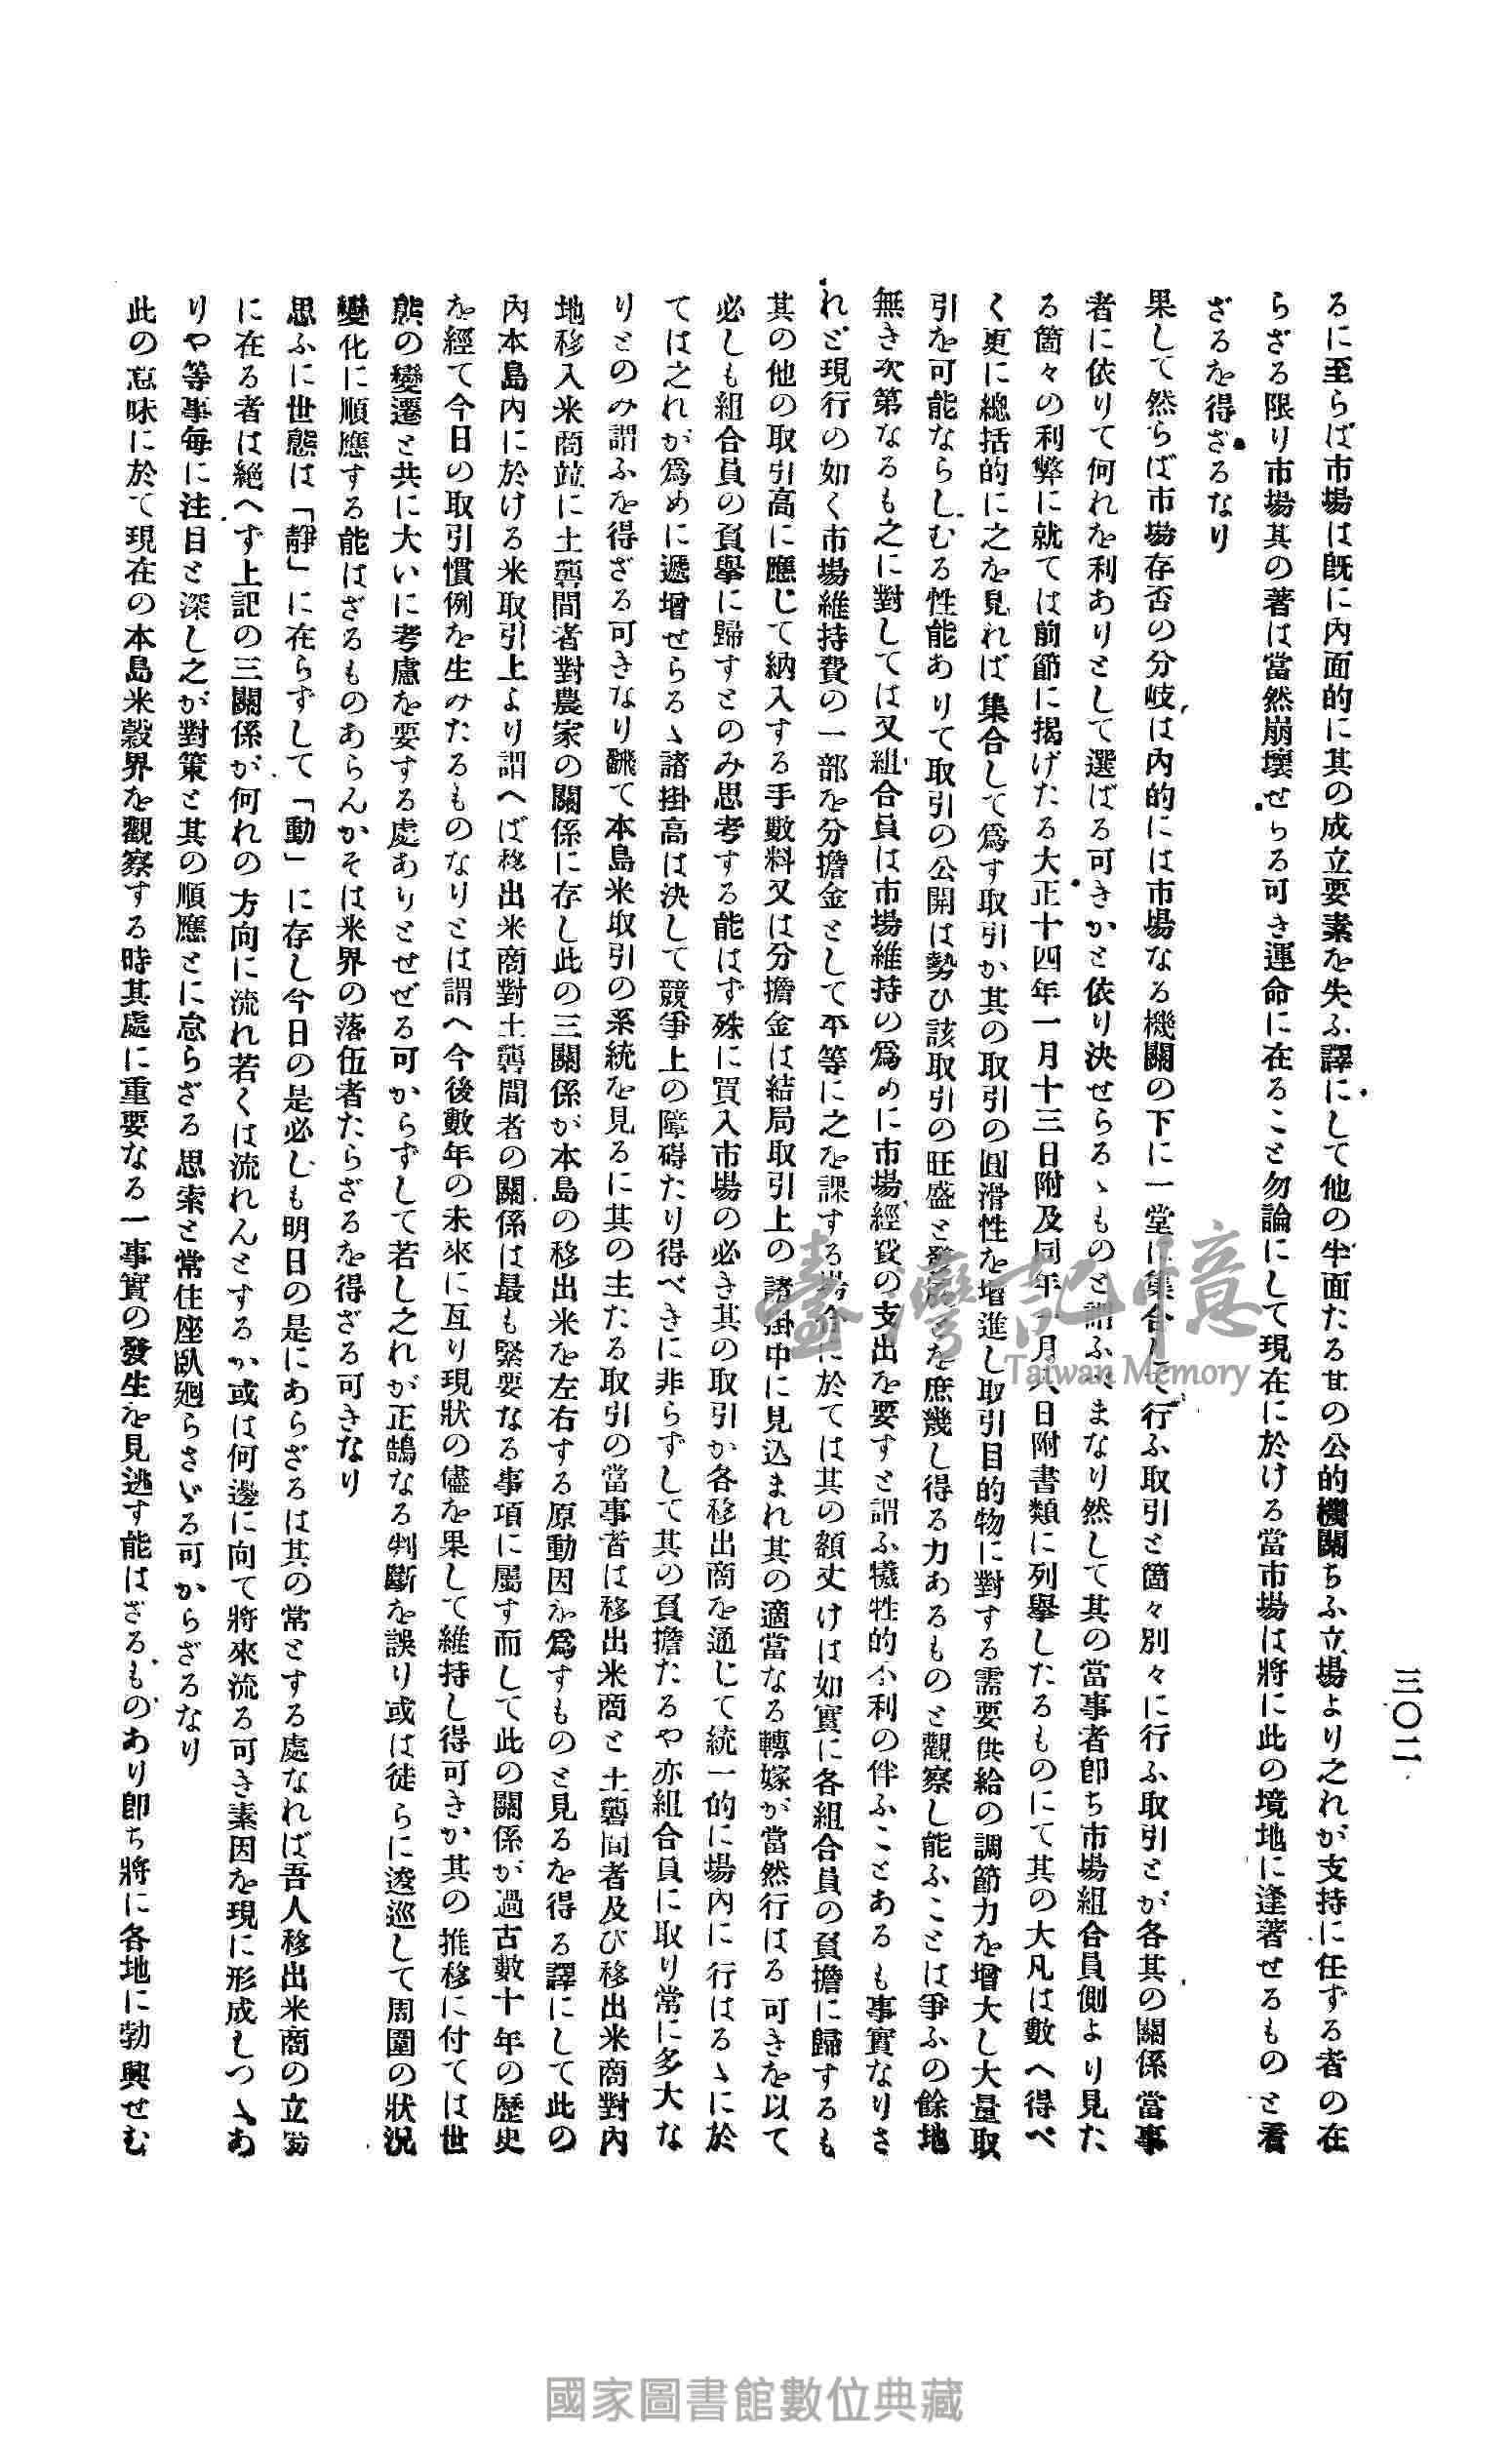 三〇二
るに至らば市場は既に内面的に其の成立要素を失ふ譯にして他の半面たる其の公的機關ちふ立場より之れが支持に任ずる者の在
らざる限り市場其の著は當然崩壞せらる可き運命に在ること勿論にして現在に於ける當市場は將に此の境地に逢著せるものと看
ざるを得ざるなり
果して然らば市場存否の分岐は内的には市場なる機關の下に一堂に集合して行ふ取引と箇々別々に行ふ取引とが各其の關係當事
者に依りて何れを利ありとして選ばる可きかと依り決せらるゝものと謂ふべまなり然して其の當事者即ち市場組合員側より見た
る箇々の利弊に就ては前節に揭げたる大正十四年一月十三日附及同年一月 日附書類に列擧したるものにて其の大凡は數へ得べ
く更に總括的に之を見れば集合して爲す取引か其の取引の圓滑性を增進し取引目的物に對する需要供給の調節力を增大し大量取
引を可能ならしむる性能ありて取引の公開は勢ひ該取引の旺盛と發展とを庶幾し得る力あるものと觀察し能ふことは爭ふの餘地
無き次第なるも之に對しては又組合員は市場維持の爲めに市場經費の支出を要すと謂ふ犧牲的不利の伴ふことあるも事實なりさ
れど現行の如く市場維持費の一部を分擔金として平等に之を課する場合に於ては其の額丈けは如實に各組合員の負擔に歸するも
其の他の取引高に應じて納入する手數料又は分擔金は結局取引上の諸掛中に見込まれ其の適當なる轉嫁が當然行はる可きを以て
必しも組合員の負擧に歸すとのみ思考する能はず殊に買入市場の必き其の取引か各移出商を通じて統一的に場内に行はるゝに於
ては之れが爲めに遞增せらるゝ諸掛高は決して競爭上の障碍たり得べきに非らずして其の負擔たるや亦組合員に取り常に多大な
りとのみ謂ふを得ざる可きなり飜て本島米取引の系統を見るに其の主たる取引の當事者は移出米商と土礱間者及び移出米商對内
地移入米商竝に土礱間者對農家の關係に存し此の三關係が本島の移出米を左右する原動因を爲すものと見るを得る譯にして此の
内本島内に於ける米取引上より謂へば移出米商對土礱間者の關係は最も緊要なる事項に屬す而して此の關係が過古數十年の歷史
を經て今日の取引慣例を生みたるものなりとは謂へ今後數年の未來に亙り現狀の儘を果して維持し得可きか其の推移に付ては世
態の變遷と共に大いに考慮を要する處ありとせぜる可からずして若し之れが正鵠なる判斷を誤り或は徒らに逡巡して周圍の狀況
變化に順應する能はざるものあらんかそは米界の落伍者たらざるを得ざる可きなり
思ふに世態は「靜」に在らずして「動」に存し今日の是必しも明日の是にあらざるは其の常とする處なれば吾人移出米商の立場
に在る者は絶へず上記の三關係が何れの方向に流れ若くは流れんとするか或は何邊に向て將來流る可き素因を現に形成しつゝあ
りや等事毎に注目と深し之が對策と其の順應とに怠らざる思索と常住座臥廻らさゞる可からざるなり
此の意味に於て現在の本島米穀界を觀察する時其處に重要なる一事實の發生を見逃す能はざるものあり即ち將に各地に勃興せむ
臺灣記憶
Taiwan Memory
國家圖書館數位典藏